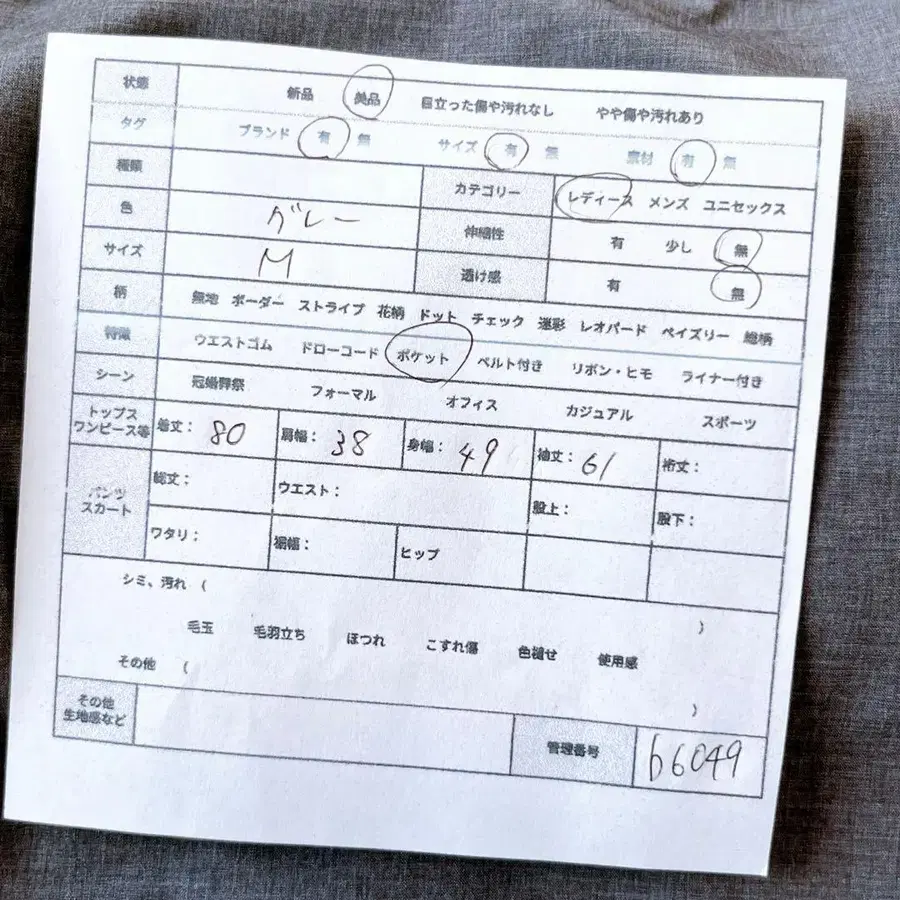 状態 新品 美品 目立った傷や汚れなし やや傷や汚れあり
タグ ブランド 有 無 サイズ 有 無 素材 有 無
種類 カテゴリー レディース メンズ ユニセックス
色 グレー 伸縮性 有 少し 無
サイズ M 透け感 有 無
柄 無地 ボーダー ストライプ 花柄 ドット チェック 迷彩 レオパード ペイズリー 総柄
特徴 ウエストゴム ドローコード ポケット ベルト付き リボン・ヒモ ライナー付き
シーン 冠婚葬祭 フォーマル オフィス カジュアル スポーツ
トップス
ワンピース等 着丈: 80 肩幅: 38 身幅: 49 袖丈: 61 裄丈:
パンツ
スカート 総丈: ウエスト: 股上: 股下:
ワタリ: 裾幅: ヒップ
シミ、汚れ ( )
毛玉 毛羽立ち ほつれ こすれ傷 色褪せ 使用感
その他 ( )
その他
生地感など 管理番号 b6049